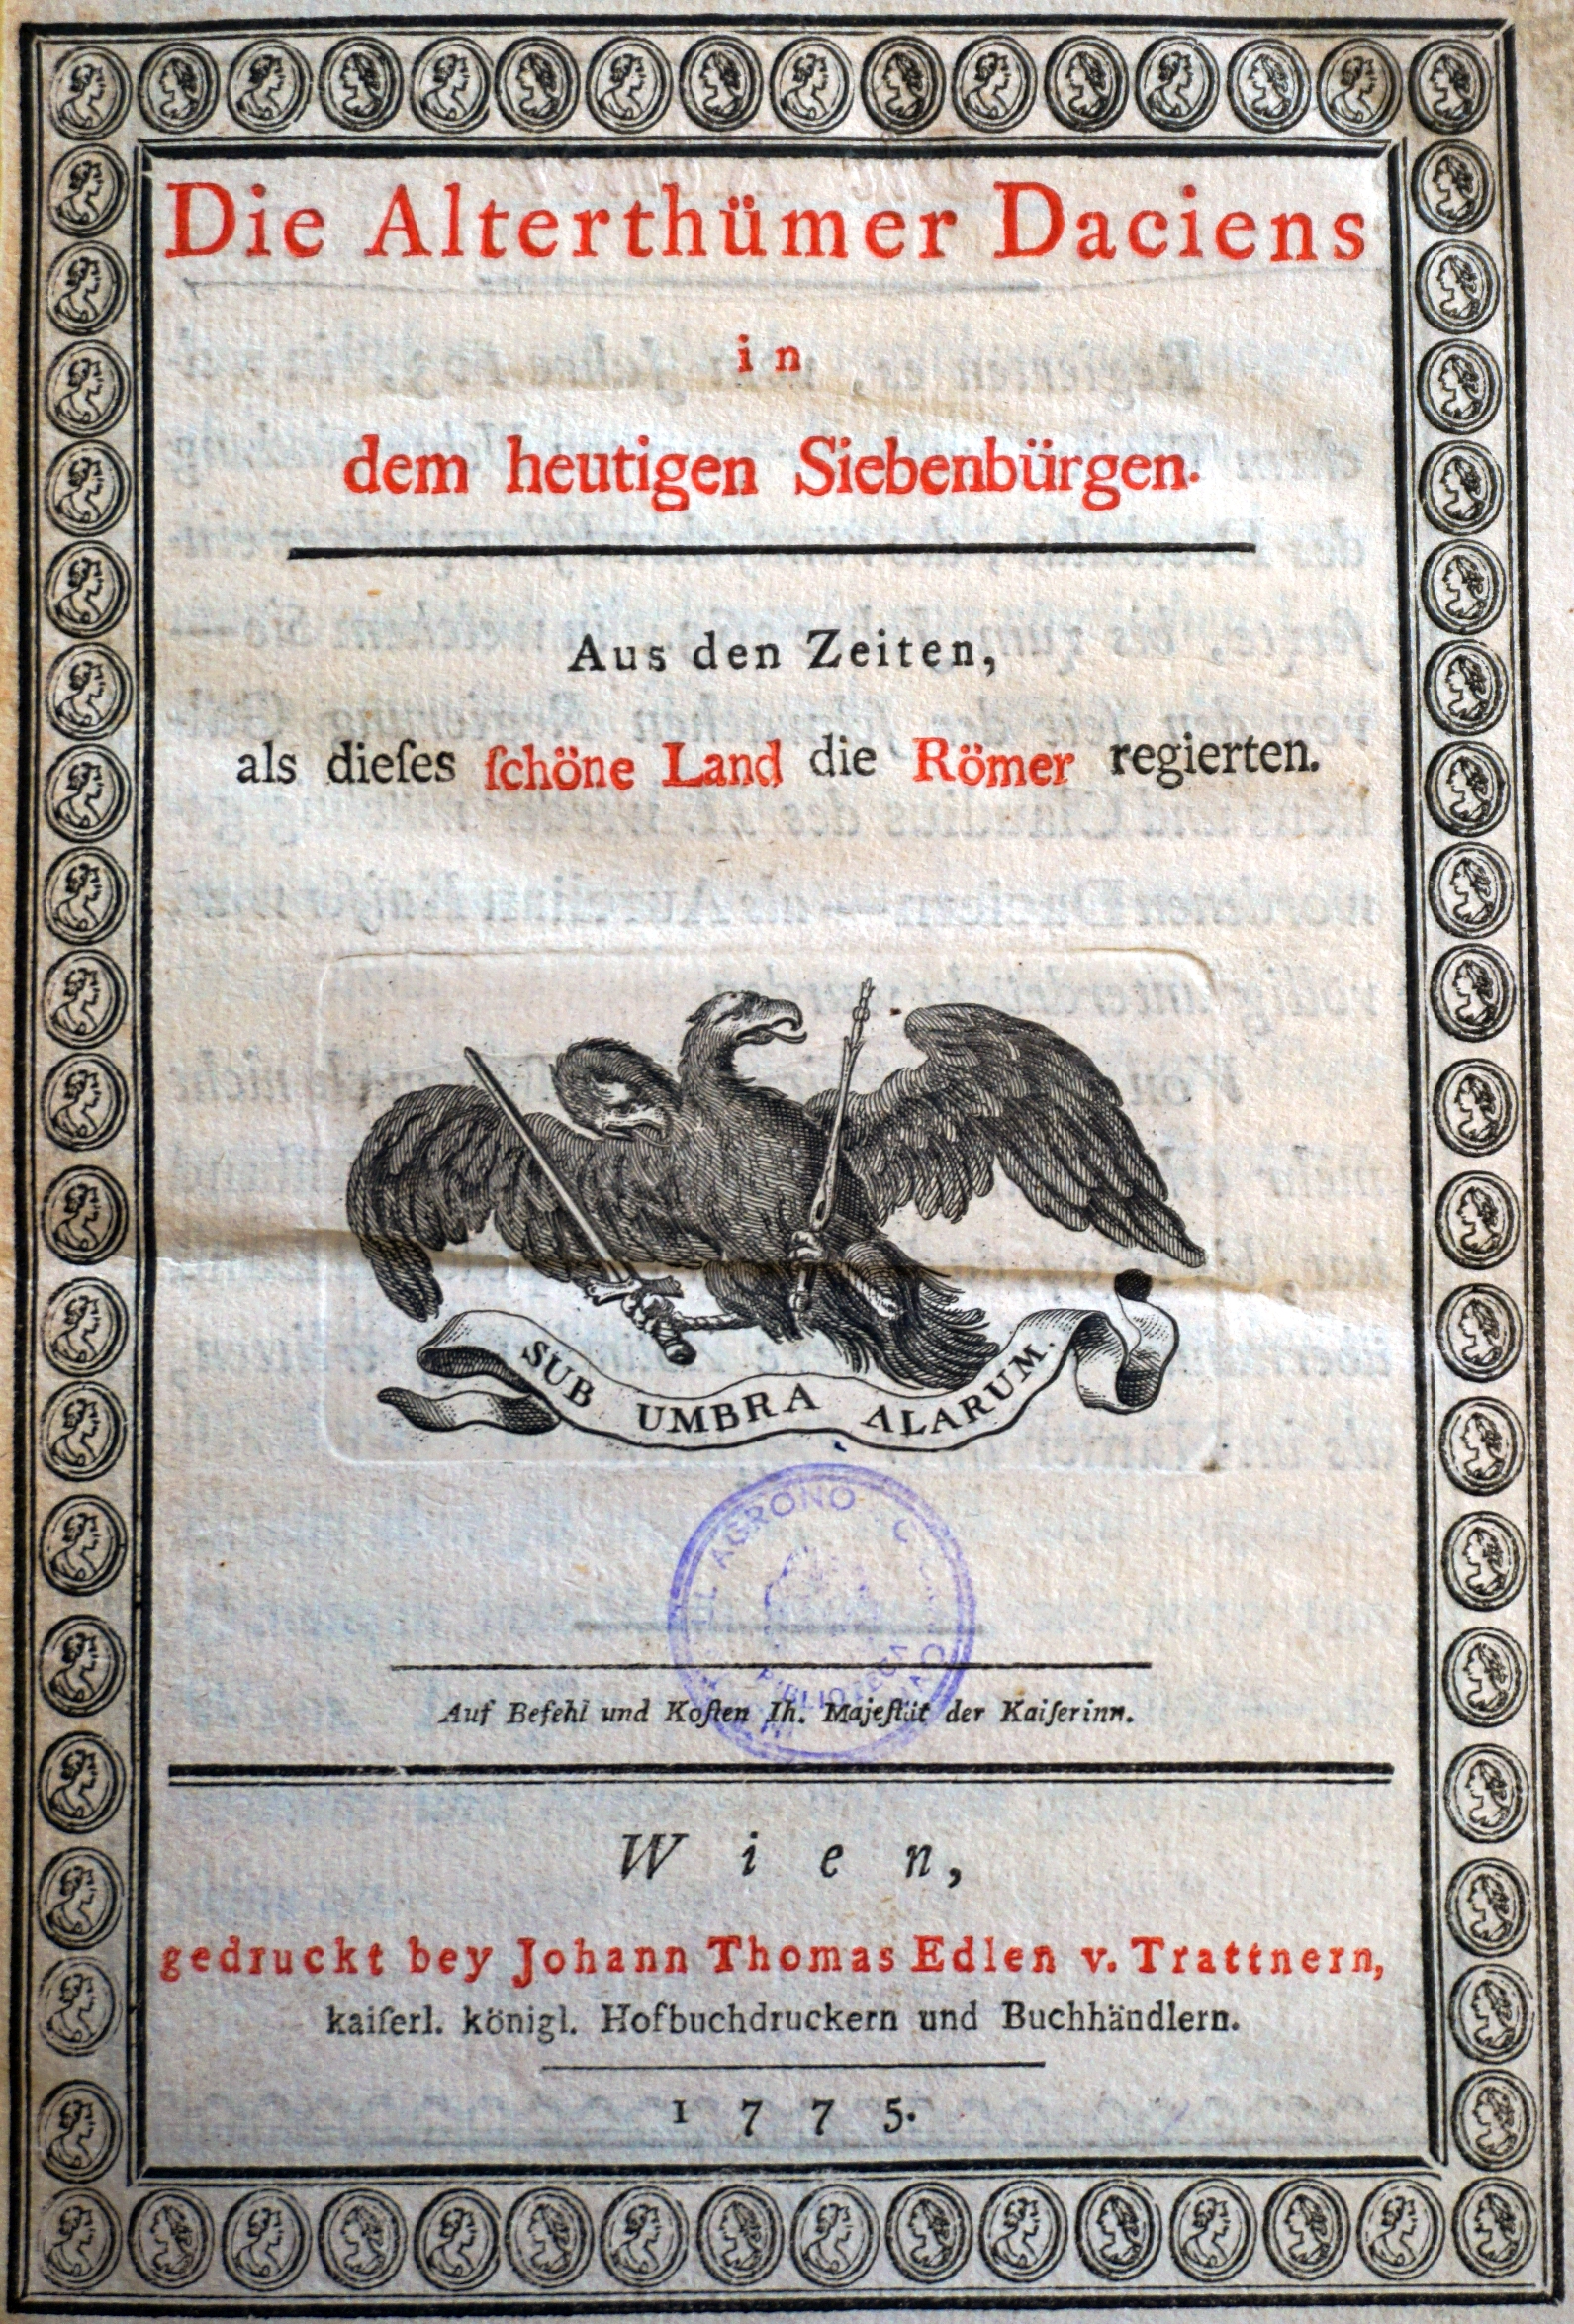 Die Alterthümer Daciens
in
dem heutigen Siebenbürgen.
Aus den Zeiten,
als dieſes ſchöne Land die Römer regierten.
SUB UMBRA ALARUM.
AGRONO
BIBLIOTECA
Auf Befehl und Koſten Ih. Majeſtät der Kaiſerinn.
Wien,
gedruckt bey Johann Thomas Edlen v. Trattnern,
kaiſerl. königl. Hofbuchdruckern und Buchhändlern.
1775.